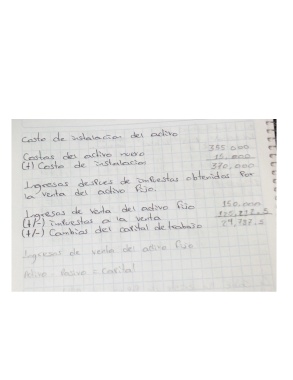 Costo de instalacion del activo
Costos del activo nuevo 355.000
(+) Costo de instalacion 15.000
370,000
Ingresos despues de impuestos obtenidos por
la venta del activo fijo.
Ingresos de venta del activo fijo 150.000
(+/-) impuestos a la venta
(+/-) Cambios del capital de trabajo
Ingresos de venta de activo fijo
Activo - Pasivo = Capital